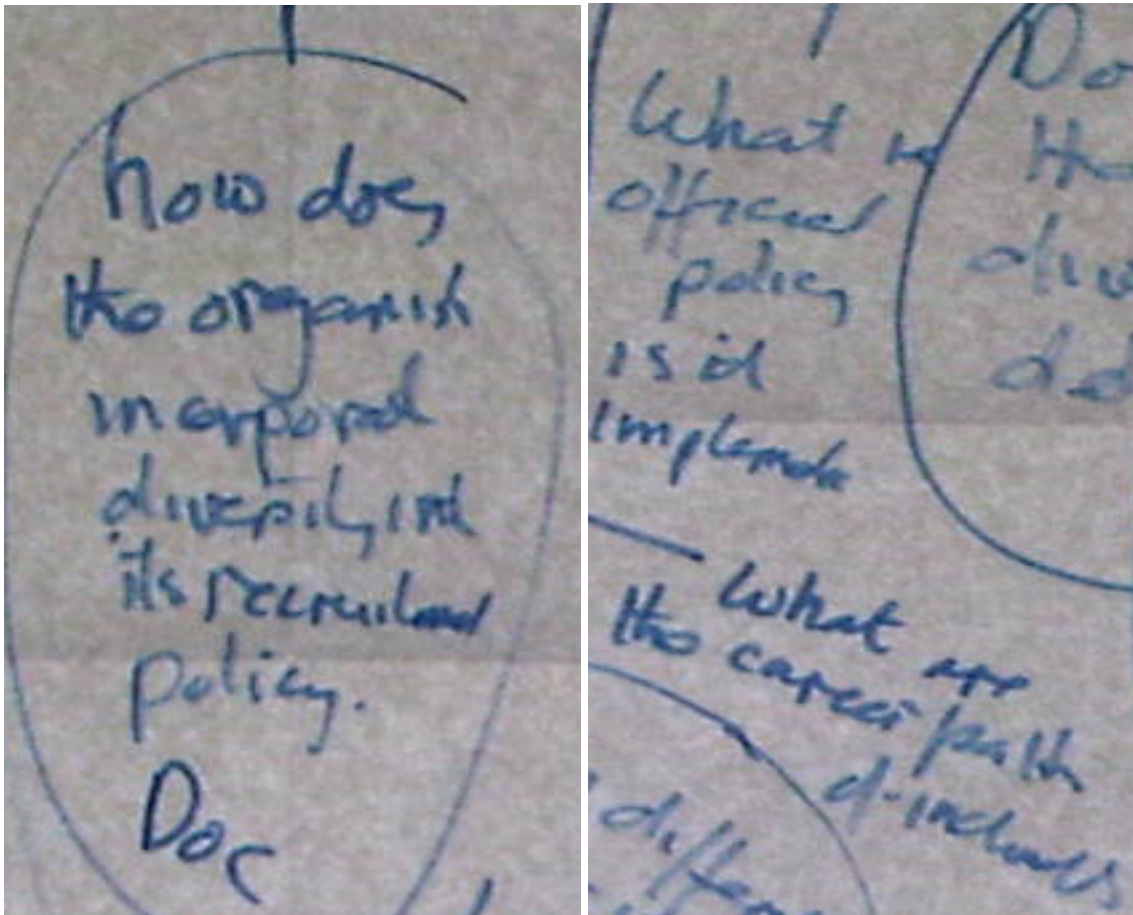 how does
the organisn
incorporat
diversity into
its recruitment
policy.
Doc
What is
official
policy
is it
implemente
Do
the
div
What are
the career path
differen